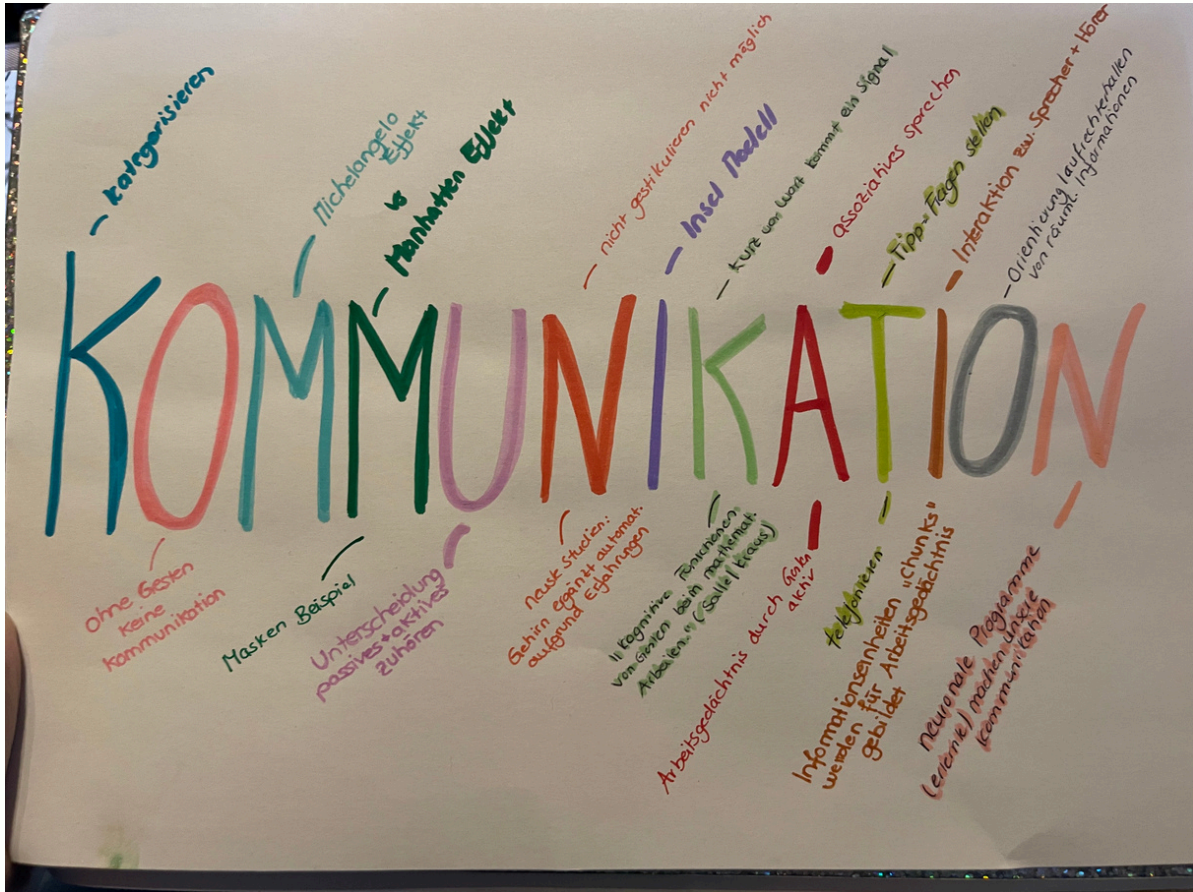 kategorisieren
Michelangelo
Effekt
vs
Manhatten Effekt
nicht gestikulieren nicht möglich
Insel Modell
kurz von Wort kommt ein Signal
assoziatives sprechen
Tipp: Fragen stellen
Interaktion zw. Sprecher + Hörer
Orientierung/aufrechterhalten
von räuml. Informationen
KOMMUNIKATION
Ohne Gesten
keine
kommunikation
Masken Beispiel
Unterscheidung
passives + aktives
zuhören
neuste Studien:
Gehirn ergänzt automat.
aufgrund Erfahrungen
"kognitive Funktionen
von Gesten beim mathemat.
Arbeiten" (Salle/Kraus)
Arbeitsgedächtnis durch Gesten
aktiv
telefonieren
Informationseinheiten "chunks"
werden für Arbeitsgedächtnis
gebildet
neuronale Programme
(erlernte) machen unsere
kommunikation